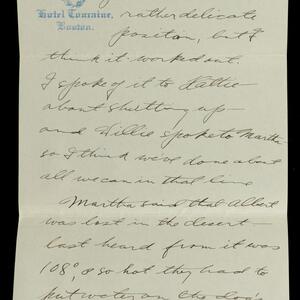 Hotel Touraine,
Boston.
rather delicate
position, but I
think it worked out.
I spoke of it to Hattie
about shutting up—
and Willie spoke to Martha—
so I think we've done about
all we can in that line
Martha said that Albert
was lost in the desert—
last heard from it was
108°, & so hot they had to
put water on the dog's